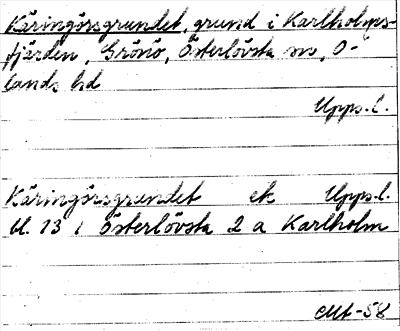 Käringörsgrundet, grund i Karlholms-
fjärden, Grönö, Österlövsta sn, O-
lands hd
Upps. l.
Käringörsgrundet ek Upps. l.
Bl. 13 i Österlövsta 2 a Karlholm